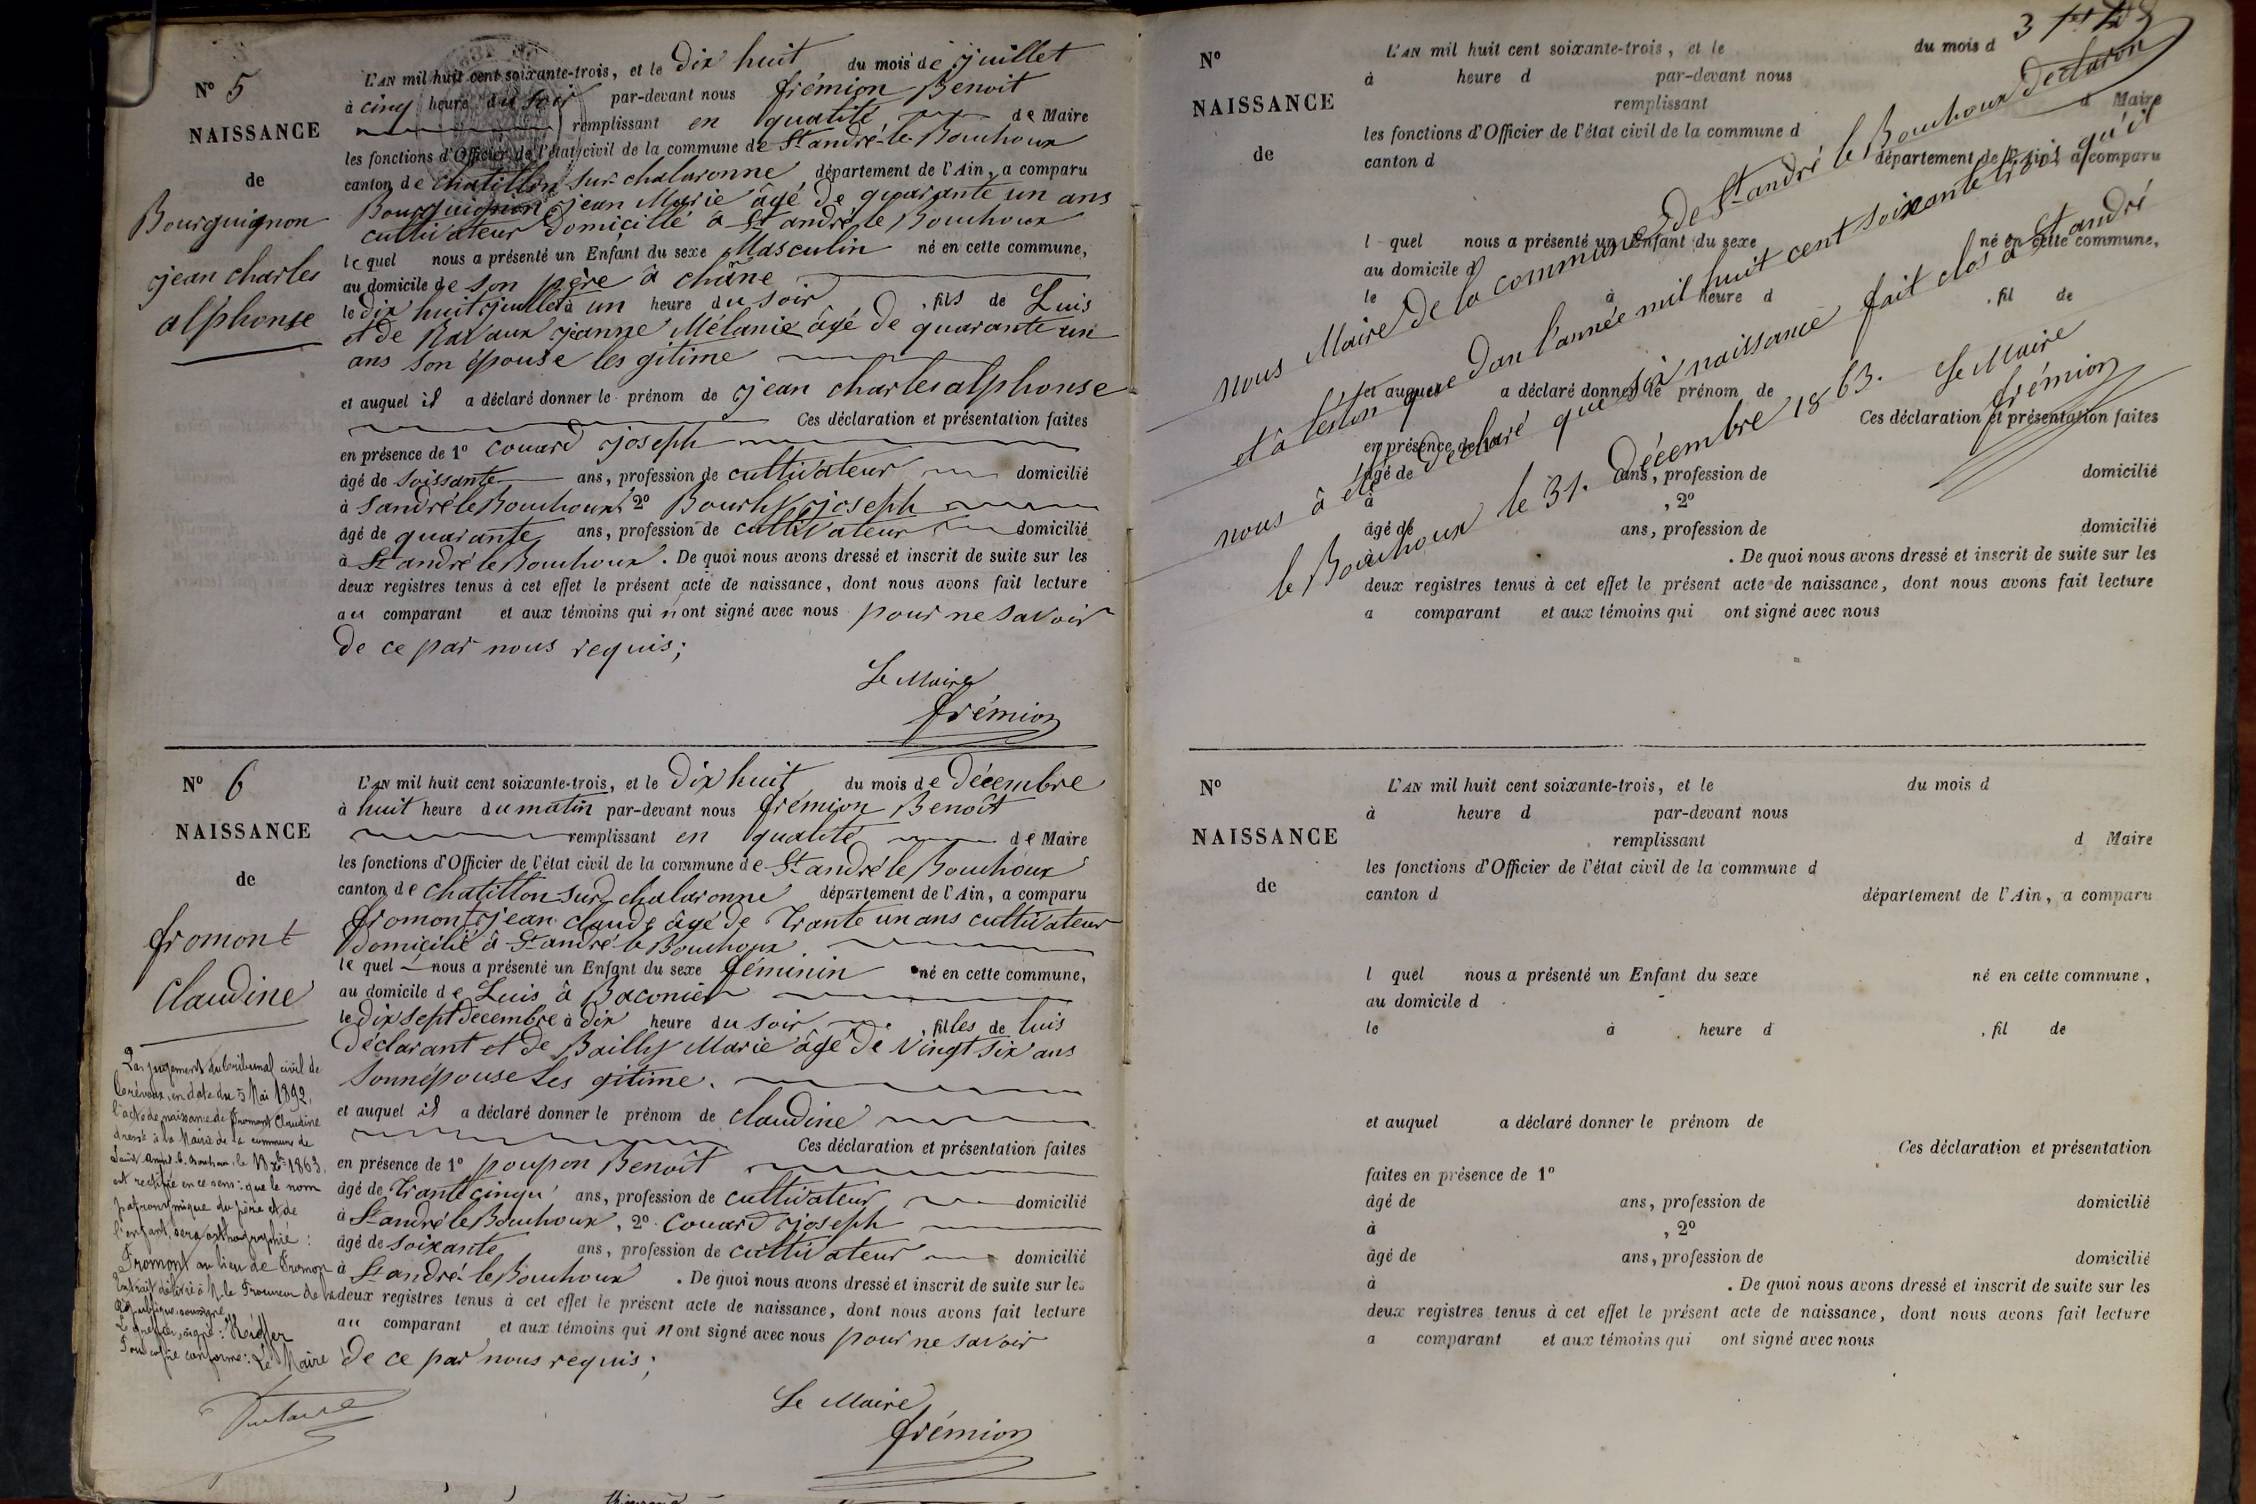 N° 5
NAISSANCE
de
Bourguignon
jean charles
alphonse
L'AN mil huit cent soixante-trois, et le dix huit du mois de juillet
à cinq heure du soir par-devant nous frémion Benoit
remplissant en qualité de Maire
les fonctions d'Officier de l'état civil de la commune de St andré-le-Bouchoux
canton de chatillon sur chalaronne département de l'Ain, a comparu
Bourguignon jean Marie âgé de quarante un ans
cultivateur domicillé à St andré le Bouchoux
le quel nous a présenté un Enfant du sexe Masculin né en cette commune,
au domicile de son père à châne
le dix huit juillet à un heure du soir, fils de Luis
et de Ravaux jeanne Mélanie âgé de quarante un
ans son épouse les gitime
et auquel il a déclaré donner le prénom de jean charles alphonse
Ces déclaration et présentation faites
en présence de 1° couard joseph
âgé de soissante ans, profession de cultivateur domicilié
à S andré le Bouchoux, 2° Bourly joseph
âgé de quarante ans, profession de cultivateur domicilié
à St andré le Bouchoux. De quoi nous avons dressé et inscrit de suite sur les
deux registres tenus à cet effet le présent acte de naissance, dont nous avons fait lecture
au comparant et aux témoins qui n'ont signé avec nous pour ne savoir
de ce par nous requis;
Le Maire
frémion
N° 6
NAISSANCE
de
fromont
Claudine
Par jugement du tribunal civil de
Trévoux, en date du 5 Mai 1892,
l'acte de naissance de Fromont Claudine
dressé à la Mairie de la commune de
Saint André-le-Bouchoux, le 18 Xbre 1863,
est rectifié en ce sens: que le nom
patronymique du père et de
l'enfant, sera orthographié:
Fromont au lieu de Fromon
Extrait délivré à M. le Procureur de la
République, soussigné,
Le greffier, signé:
Pour copie conforme: Le Maire
L'AN mil huit cent soixante-trois, et le dix huit du mois de décembre
à huit heure du matin par-devant nous frémion Benoît
remplissant en qualité de Maire
les fonctions d'Officier de l'état civil de la commune de St andré le Bouchoux
canton de chatillon-sur chalaronne département de l'Ain, a comparu
fromont jean claude âgé de trante un ans cultivateur
domicilié à St andré le Bouchoux
le quel nous a présenté un Enfant du sexe féminin né en cette commune,
au domicile de Luis à Baconier
le dix sept decembre à dix heure du soir, filles de luis
déclarant et de Bailly Marie âgé de vingt six ans
sonnépouse les gitime.
et auquel il a déclaré donner le prénom de claudine
Ces déclaration et présentation faites
en présence de 1° poupon Benoît
âgé de trante cinqu ans, profession de cultivateur domicilié
à St andré le Bouchoux, 2° couard joseph
âgé de soixante ans, profession de cultivateur domicilié
à St andré-le Bouchoux. De quoi nous avons dressé et inscrit de suite sur les
deux registres tenus à cet effet le présent acte de naissance, dont nous avons fait lecture
au comparant et aux témoins qui n ont signé avec nous pour ne savoir
de ce par nous requis;
Le Maire
frémion
N°
NAISSANCE
de
L'AN mil huit cent soixante-trois, et le du mois d
à heure d par-devant nous
remplissant d Maire
les fonctions d'Officier de l'état civil de la commune d
canton d département de l'Ain, a comparu
l quel nous a présenté un Enfant du sexe né en cette commune,
au domicile d
le à heure d , fil de
et auquel a déclaré donner le prénom de
Ces déclaration et présentation faites
en présence de 1°
âgé de ans, profession de domicilié
à , 2°
âgé de ans, profession de domicilié
à . De quoi nous avons dressé et inscrit de suite sur les
deux registres tenus à cet effet le présent acte de naissance, dont nous avons fait lecture
a comparant et aux témoins qui ont signé avec nous
nous Maire de la commune de St andré le Bouchoux declaron
et à teston que dan l'année mil huit cent soixante trois qu'il
nous à été déclaré que six naissance fait clos à St andré
le Bouchoux le 31. décembre 1863. Le Maire
frémion
N°
NAISSANCE
de
L'AN mil huit cent soixante-trois, et le du mois d
à heure d par-devant nous
remplissant d Maire
les fonctions d'Officier de l'état civil de la commune d
canton d département de l'Ain, a comparu
l quel nous a présenté un Enfant du sexe né en cette commune,
au domicile d
le à heure d , fil de
et auquel a déclaré donner le prénom de
Ces déclaration et présentation
faites en présence de 1°
âgé de ans, profession de domicilié
à , 2°
âgé de ans, profession de domicilié
à . De quoi nous avons dressé et inscrit de suite sur les
deux registres tenus à cet effet le présent acte de naissance, dont nous avons fait lecture
a comparant et aux témoins qui ont signé avec nous